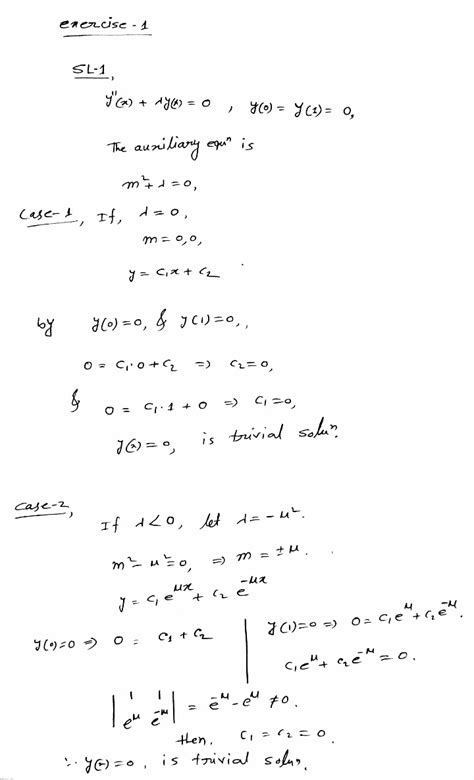 exercise - 1
SL-1,
y''(x) + λy(x) = 0 , y(0) = y(1) = 0,
The auxiliary equⁿ is
m² + λ = 0,
Case-1, If, λ = 0,
m = 0,0,
y = c₁x + c₂
by y(0) = 0, & y(1) = 0,,
0 = c₁·0 + c₂ ⇒ c₂ = 0,
& 0 = c₁·1 + 0 ⇒ c₁ = 0,
y(x) = 0, is trivial soluⁿ.
Case-2, If λ < 0, let λ = -μ².
m² - μ² = 0, ⇒ m = ±μ.
y = c₁e^{μx} + c₂e^{-μx}
y(0) = 0 ⇒ 0 = c₁ + c₂ | y(1) = 0 ⇒ 0 = c₁e^{μ} + c₂e^{-μ}.
c₁e^{μ} + c₂e^{-μ} = 0.
| 1 1 |
| e^{μ} e^{-μ} | = e^{-μ} - e^{μ} ≠ 0.
then, c₁ = c₂ = 0.
∴ y(x) = 0, is trivial soluⁿ,